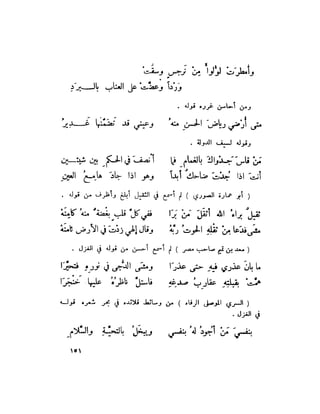 وأمطرَتْ لؤلؤاً مِنْ نَرجسٍ وسقَتْ
وَرْداً وعضَّتْ على العناب بالــبرَدِ
ومن أحاسن غرره قوله .
متى أرْضي رياضَ الحسنِ منهُ وعيني قد تضمَّنَها غَــديرُ
وقوله لسيف الدولة .
مَنْ قاسَ جدْواكَ بالغمامِ فما أنصفَ في الحكمِ بين شيئــينِ
أنتَ اذا جُدْتَ ضاحكٌ أبداً وهو اذا جادَ هامِــعُ العينِ
( أبو عمارة الصوري ) لم أسمع في الثقيل أبلغ وأظرف من قوله .
ثقيلٌ براهُ اللهُ أثقلَ مَنْ بَرَا ففي كلِّ قلبٍ بِغْضَةٌ منهُ كامِنَهْ
مشَى فدَعا مِنْ ثِقْلِهِ الحوتُ ربَّهُ وقال إلهي زدْتَ في الأرضِ ثامنَهْ
( معد بن تميم صاحب مصر ) لم أسمع أحسن من قوله في الغزل .
ما بانَ عذري فيهِ حتى عذرَا ومشَى الدُّجى في نورِهِ فتحيَّرَا
همَّتْ بقبلتِهِ عقاربُ صدغِهِ فاستلَّ ناظرُهُ عليها خَنْجَرَا
( السري الموصلي الرفاء ) من وسائط قلائده في بحر شعره قولــه
في الغزل .
بنفسي مَنْ أجودُ لهُ بنفسي ويبخلُ بالتحيَّــةِ والسَّلامِ
١٥١